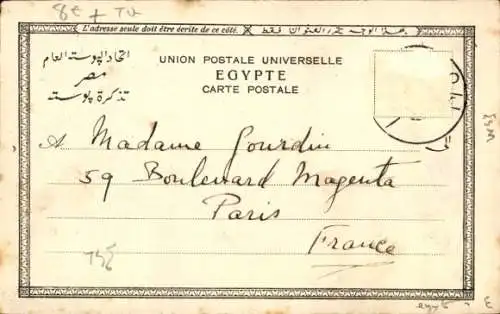 8€ + TU
L'adresse seule doit être écrite de ce côté. هذا الوجه مخصص للعنوان فقط
اتحاد البوستة العام
مصر
تذكرة بوستة
UNION POSTALE UNIVERSELLE
EGYPTE
CARTE POSTALE
A Madame Gourdin
59 Boulevard Magenta
Paris
France